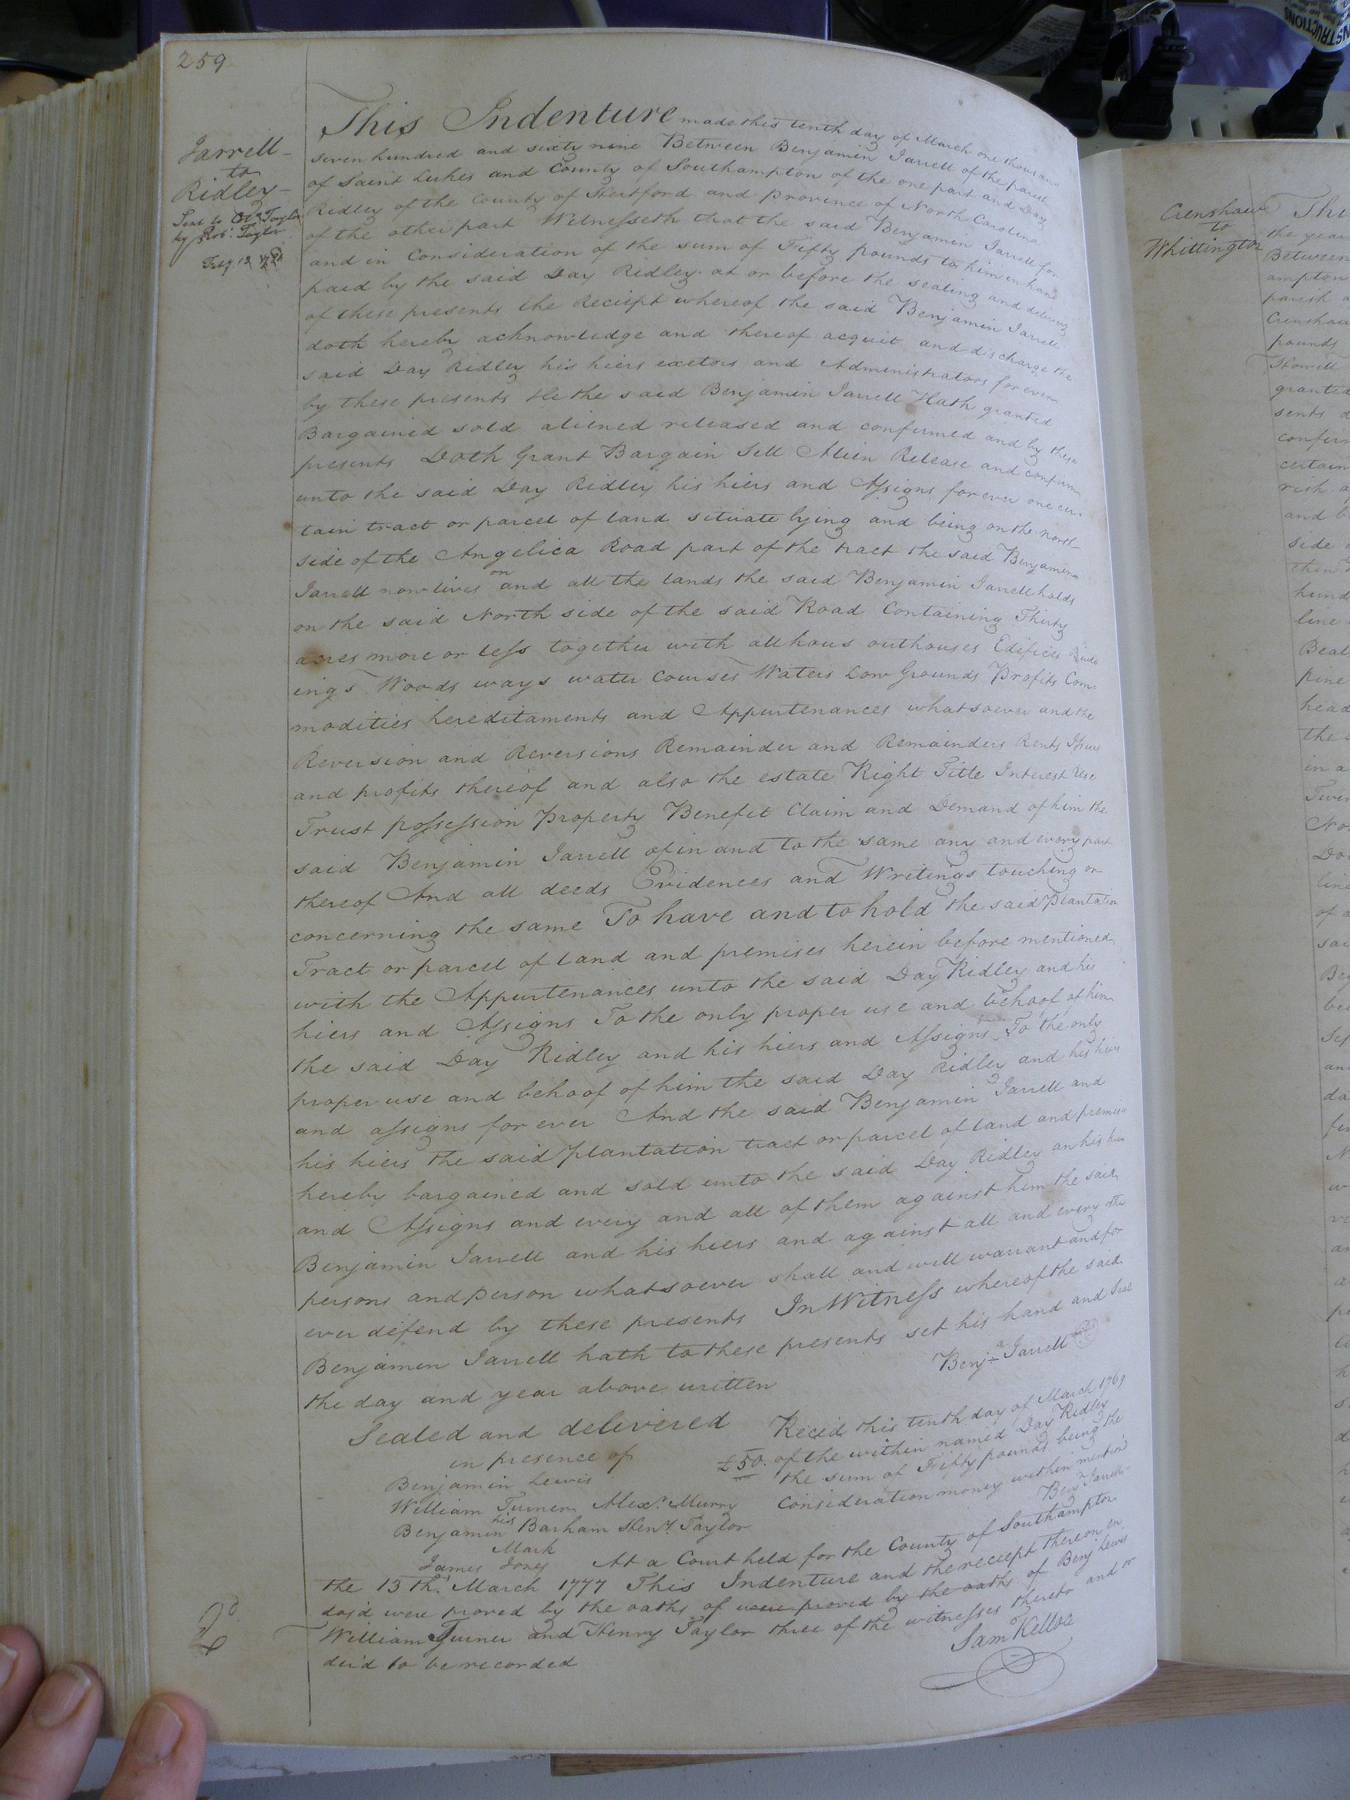 259
Jarrell
to
Ridley
Sent to
by Robt. Taylor
This Indenture made this tenth day of March one thousand
seven hundred and sixty nine Between Benjamin Jarrell of the parish
of Saint Lukes and County of Southampton of the one part and Day
Ridley of the County of Hertford and province of North Carolina
of the other part Witnesseth that the said Benjamin Jarrell for
and in Consideration of the sum of Fifty pounds to him in hand
paid by the said Day Ridley at or before the sealing and delivery
of these presents the Reciept whereof the said Benjamin Jarrell
doth hereby acknowledge and thereof acquit and discharge the
said Day Ridley his hiers exetors and Administrators for ever
by these presents He the said Benjamin Jarrell Hath granted
Bargained sold aliened released and confirmed and by these
presents Doth Grant Bargain Sell Alien Release and confirm
unto the said Day Ridley his hiers and Assigns for ever one cer
tain tract or parcel of land situate lying and being on the north
side of the Angelica Road part of the tract the said Benjamin
Jarrell now lives on and all the lands the said Benjamin Jarrell holds
on the said North side of the said Road Containing Thirty
acres more or less together with all hous outhouses Edifices Build
ings Woods ways water Courses Waters Low Grounds Profits Com
modities hereditaments and Appurtenances whatsoever and the
Reversion and Reversions Remainder and Remainders Rents Issues
and profits thereof and also the estate Right Title Interest Use
Trust possession Property Benefit Claim and Demand of him the
said Benjamin Jarrell of in and to the same any and every part
thereof And all deeds Evidences and Writings touching or
concerning the same To have and to hold the said Plantation
Tract or parcel of land and premises herein before mentioned
with the Appurtenances unto the said Day Ridley and his
hiers and Assigns To the only proper use and behoof of him
the said Day Ridley and his hiers and Assigns To the only
proper use and behoof of him the said Day Ridley and his hiers
and assigns for ever And the said Benjamin Jarrell and
his hiers the said plantation tract or parcel of land and premises
hereby bargained and sold unto the said Day Ridley an his hiers
and Assigns and every and all of them against him the said
Benjamin Jarrell and his hiers and against all and every other
persons and person whatsoever shall and will warrant and for
ever defend by these presents In Witness whereof the said
Benjamin Jarrell hath to these presents set his hand and Seal
the day and year above written
Benja. Jarrell
Sealed and delivered
in presence of
Benjamin Lewis
William Turner Alexr. Murry
Benjamin his Barham Henry Taylor
Mark
James Jones
Recied this tenth day of March 1769
£50. of the within named Day Ridley
the sum of Fifty pounds being the
Consideration money within mentiond
Benja Jarrell
At a Court held for the County of Southampton
the 13th. March 1777 This Indenture and the reciept thereon en
dosd were proved by the oaths of were proved by the oaths of Benj Lewis
William Turner and Henry Taylor three of the witnesses thereto and or
derd to be recorded
Sam Kello
Crenshaw
to
Whittington
the year
Between
ampton
parish
Crenshaw
pounds
Howell
granted
sents
confirm
certain
and b
side
line
pine
head
the
in a